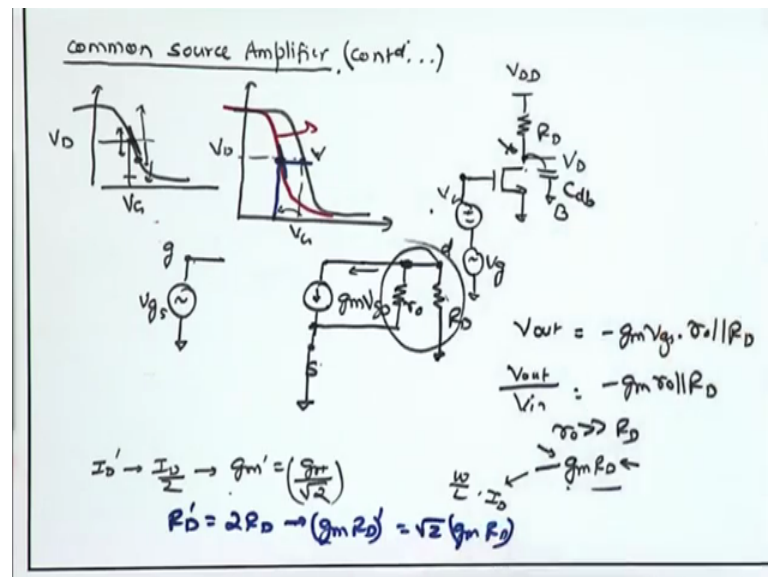 common source Amplifier (contd...)
VDD
RD
VD
Cdb
B
VD
VG
VD
VG
V
VG
Vg
g
Vgs
gmVgs
ro
RD
d
S
Vout = -gmVgs. ro||RD
Vout/Vin = -gm ro||RD
ro >> RD
W/L . ID ← gmRD ←
ID' → ID/2 → gm' = (gm/√2)
RD' = 2RD → (gm RD)' = √2 (gm RD)